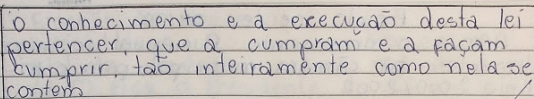 o conhecimento e a execução desta lei
pertencer, que a cumpram e a façam
cumprir, tão inteiramente como nela se
contem